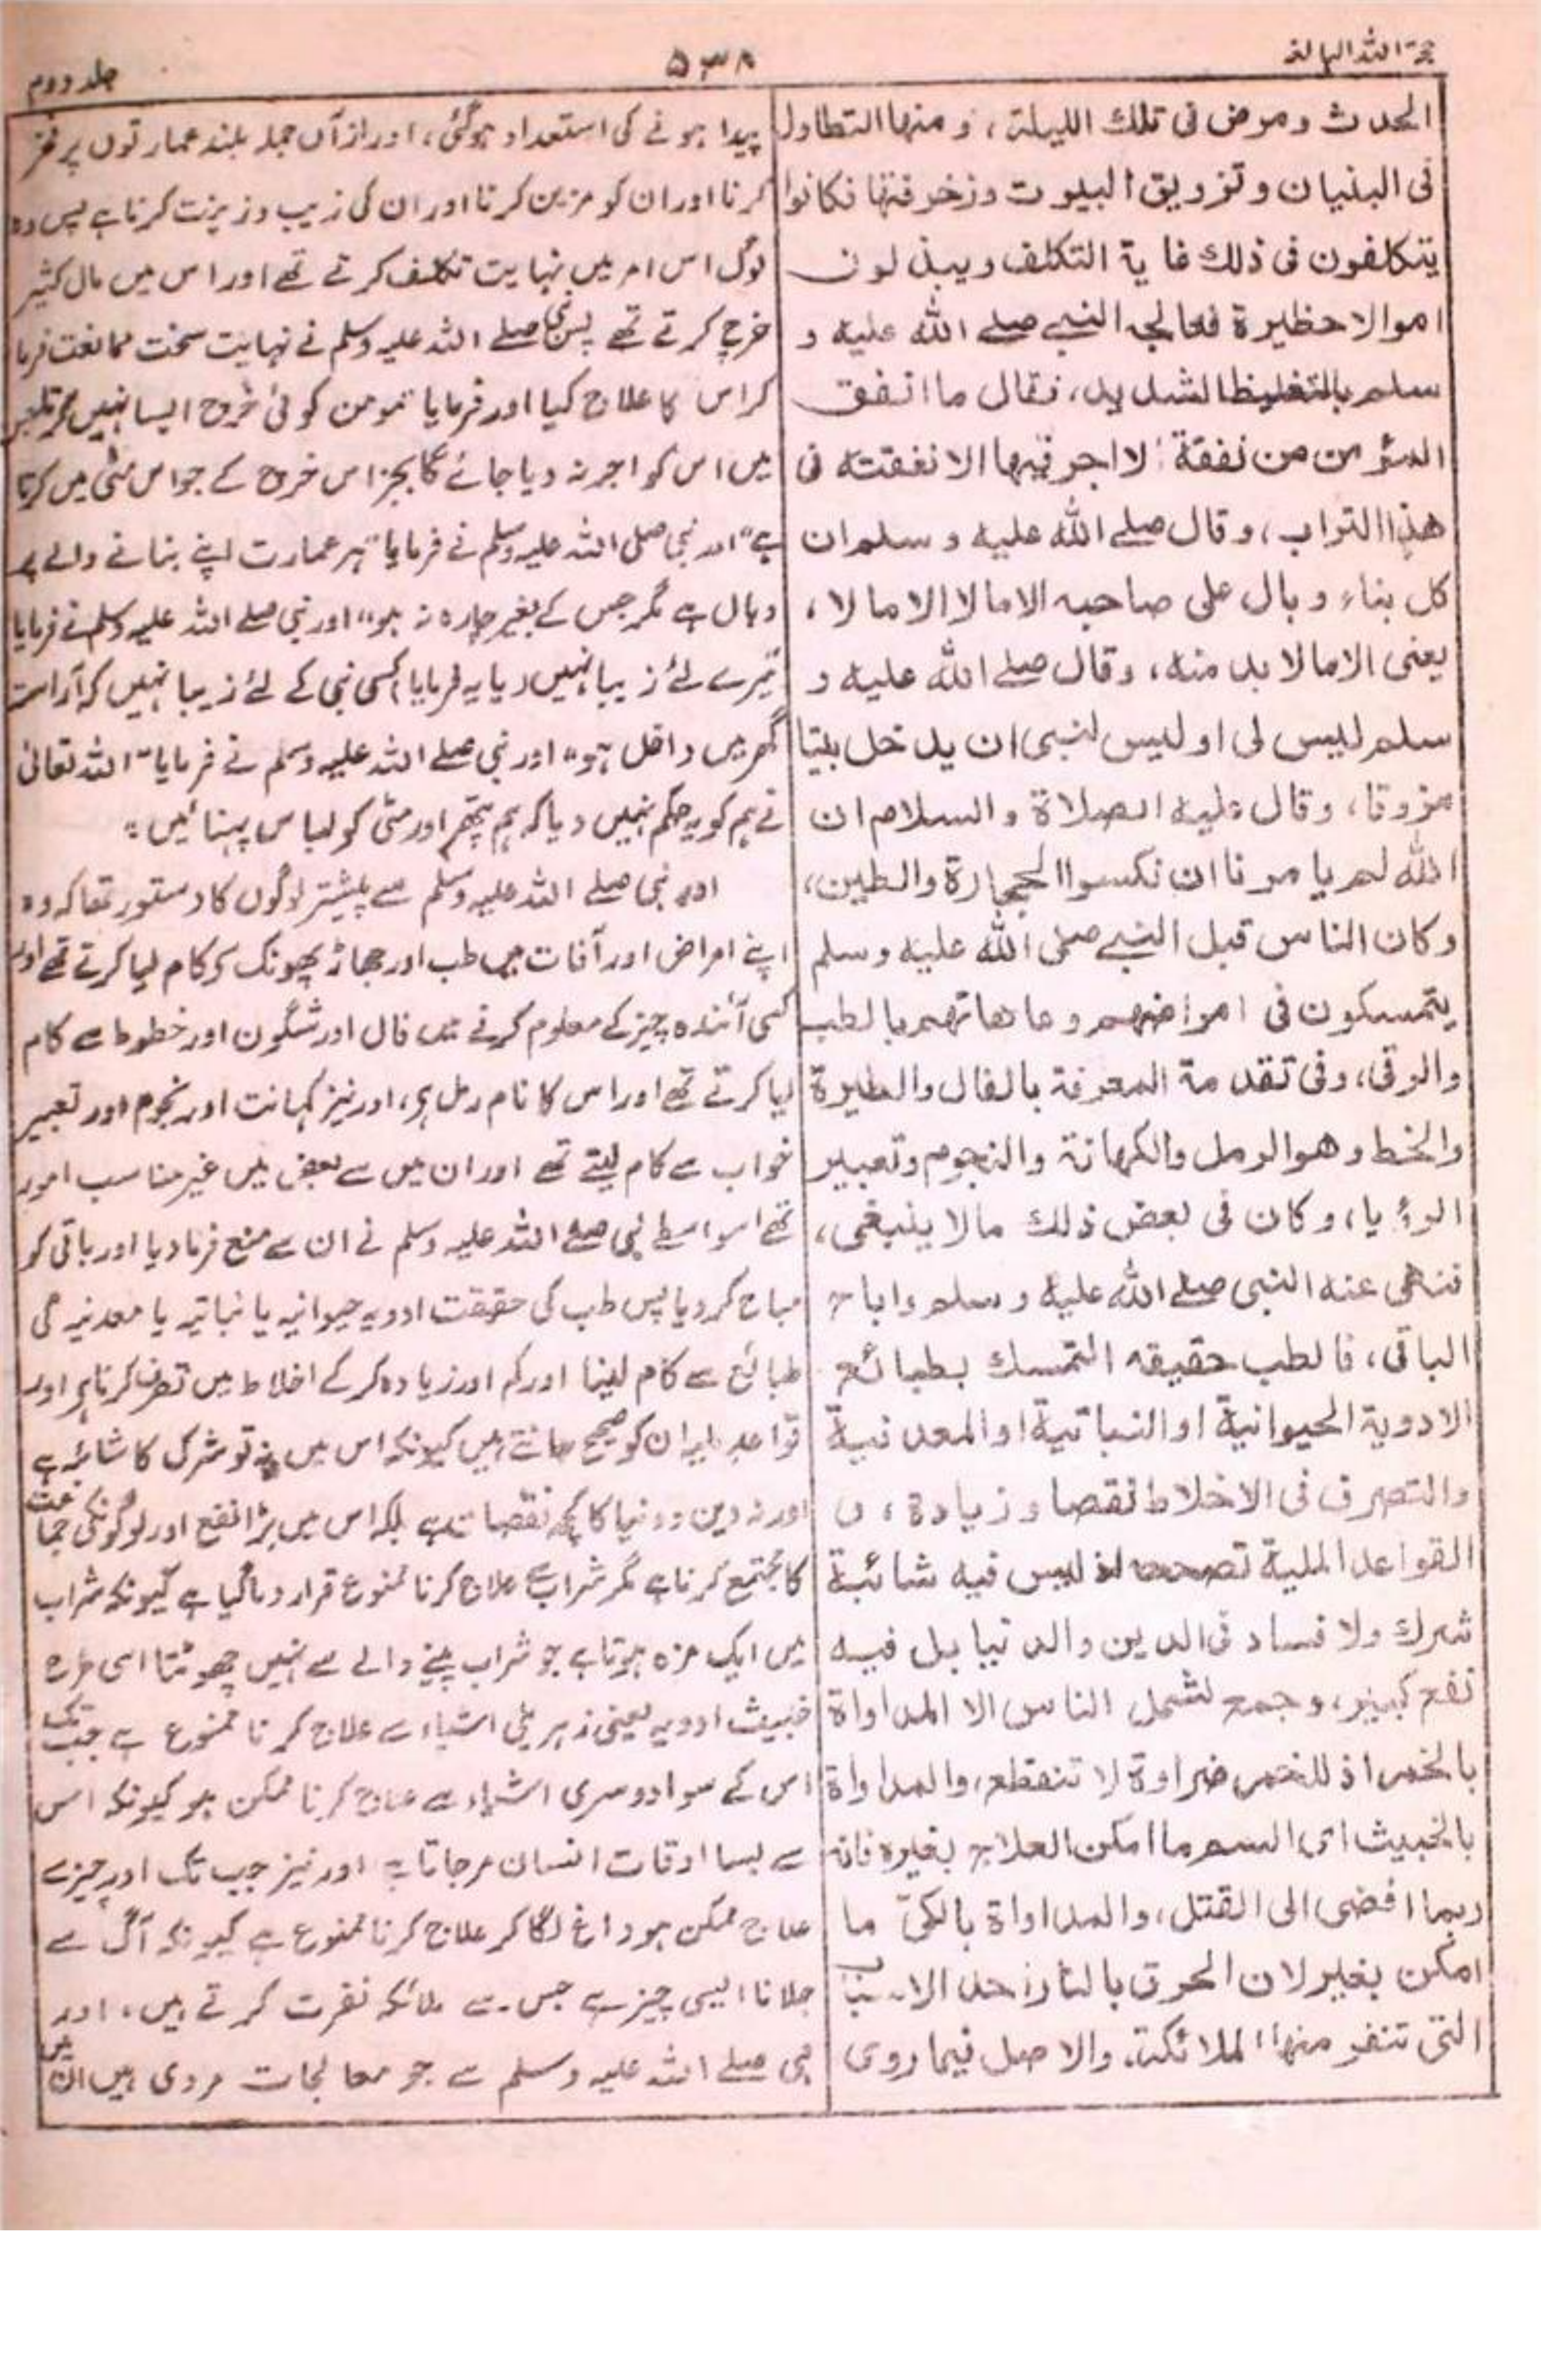 حجۃ اللہ البالغہ
۵۳۸
جلد دوم
الحدث ومرض فی تلك اللیلۃ، ومنها التطاول
فی البنیان وتزویق البیوت وزخرفتها فكانوا
یتكلفون فی ذلك غایۃ التكلف ویبذلون
اموالا خطیرۃ فعالجه النبی صلے الله علیه و
سلم بالتغلیظ الشدید، فقال ما انفق
المؤمن من نفقة الا اجر فیها الا نفقته فی
هذا التراب، وقال صلے الله علیه وسلم ان
كل بناء وبال على صاحبه الا مالا الا مالا،
یعنی الا مالا بد منه، وقال صلے الله علیه و
سلم لیس لی او لیس لنبی ان یدخل بیتا
مزوقا، وقال علیه الصلاة والسلام ان
الله لم یامرنا ان نكسوا الحجارة والطین،
وكان الناس قبل النبی صلی الله علیه وسلم
یتمسكون فی امراضهم وعاهاتهم بالطب
والرقی، وفی تقدمة المعرفة بالفال والطیرة
والخط وهو الرمل والكهانة والنجوم وتعبیر
الرؤیا، وكان فی بعض ذلك مالا ینبغی،
فنهی عنه النبی صلے الله علیه وسلم واباح
الباقی، فالطب حقیقه التمسك بطبائع
الادویة الحیوانیة او النباتیة او المعدنیة
والتصرف فی الاخلاط نقصا وزیادة، و
القواعد الملیة تصححه اذ لیس فیه شائبة
شرك ولا فساد فی الدین والدنیا بل فیه
نفع كبیر، وجمع لشمل الناس الا المداواة
بالخمر اذ للخمر ضراوة لا تنقطع، والمداواة
بالخبیث ای السم ما امكن العلاج بغیره فانه
ربما افضی الی القتل، والمداواة بالكیّ ما
امكن بغیره لان الحرق بالنار احد الاسباب
التی تنفر منها الملائكة، والاصل فیما روی
پیدا ہونے کی استعداد ہوگئی، اور ازآں جملہ بلند عمارتوں پر فخر
کرنا اور ان کو مزین کرنا اور ان کی زیب وزینت کرنا ہے پس وہ
لوگ اس امر میں نہایت تکلف کرتے تھے اور اس میں مال کثیر
خرچ کرتے تھے پس نبی صلے اللہ علیہ وسلم نے نہایت سخت ممانعت فرما
کر اس کا علاج کیا اور فرمایا "مومن کوئی خرچ ایسا نہیں کرتا جس
میں اس کو اجر نہ دیا جائے گا بجز اس خرچ کے جو اس مٹی میں کرتا
ہے" اور نبی صلی اللہ علیہ وسلم نے فرمایا "ہر عمارت اپنے بنانے والے پر
وبال ہے مگر جس کے بغیر چارہ نہ ہو" اور نبی صلے اللہ علیہ وسلم نے فرمایا
"میرے لئے زیبا نہیں (یا یہ فرمایا) کسی نبی کے لئے زیبا نہیں کہ آراستہ
گھر میں داخل ہو" اور نبی صلے اللہ علیہ وسلم نے فرمایا "اللہ تعالیٰ
نے ہم کو یہ حکم نہیں دیا کہ ہم پتھر اور مٹی کو لباس پہنائیں"
اور نبی صلے اللہ علیہ وسلم سے پیشتر لوگوں کا دستور تھا کہ وہ
اپنے امراض اور آفات میں طب اور جھاڑ پھونک کو کام لیا کرتے تھے اور
کسی آئندہ چیز کے معلوم کرنے میں فال اور شگون اور خطوط سے کام
لیا کرتے تھے اور اس کا نام رمل ہی، اور نیز کہانت اور نجوم اور تعبیر
خواب سے کام لیتے تھے اور ان میں سے بعض میں غیر مناسب امور
تھے اسواسطے نبی صلے اللہ علیہ وسلم نے ان سے منع فرمادیا اور باقی کو
مباح کردیا پس طب کی حقیقت ادویہ حیوانیہ یا نباتیہ یا معدنیہ کی
طبائع سے کام لینا اور کم اور زیادہ کر کے اخلاط میں تصرف کرنا ہی اور
قواعد ملیہ ان کو صحیح جانتے ہیں کیونکہ اس میں نہ تو شرک کا شائبہ ہے
اور نہ دین ودنیا کا کچھ نقصان ہے بلکہ اس میں بڑا نفع اور لوگونکی جماعت
کا مجتمع کرنا ہے مگر شراب سے علاج کرنا ممنوع قرار دیا گیا ہے کیونکہ شراب
میں ایک مزہ ہوتا ہے جو شراب پینے والے سے نہیں چھوٹتا اسی طرح
خبیث ادویہ یعنی زہریلی اشیاء سے علاج کرنا ممنوع ہے جب تک
اس کے سوا دوسری اشیاء سے علاج کرنا ممکن ہو کیونکہ اس
سے بسا اوقات انسان مرجاتا ہے اور نیز جب تک اور چیز سے
علاج ممکن ہو داغ لگا کر علاج کرنا ممنوع ہے کیونکہ آگ سے
جلانا ایسی چیز ہے جس سے ملائکہ نفرت کرتے ہیں، اور
نبی صلے اللہ علیہ وسلم سے جو معالجات مروی ہیں ان میں